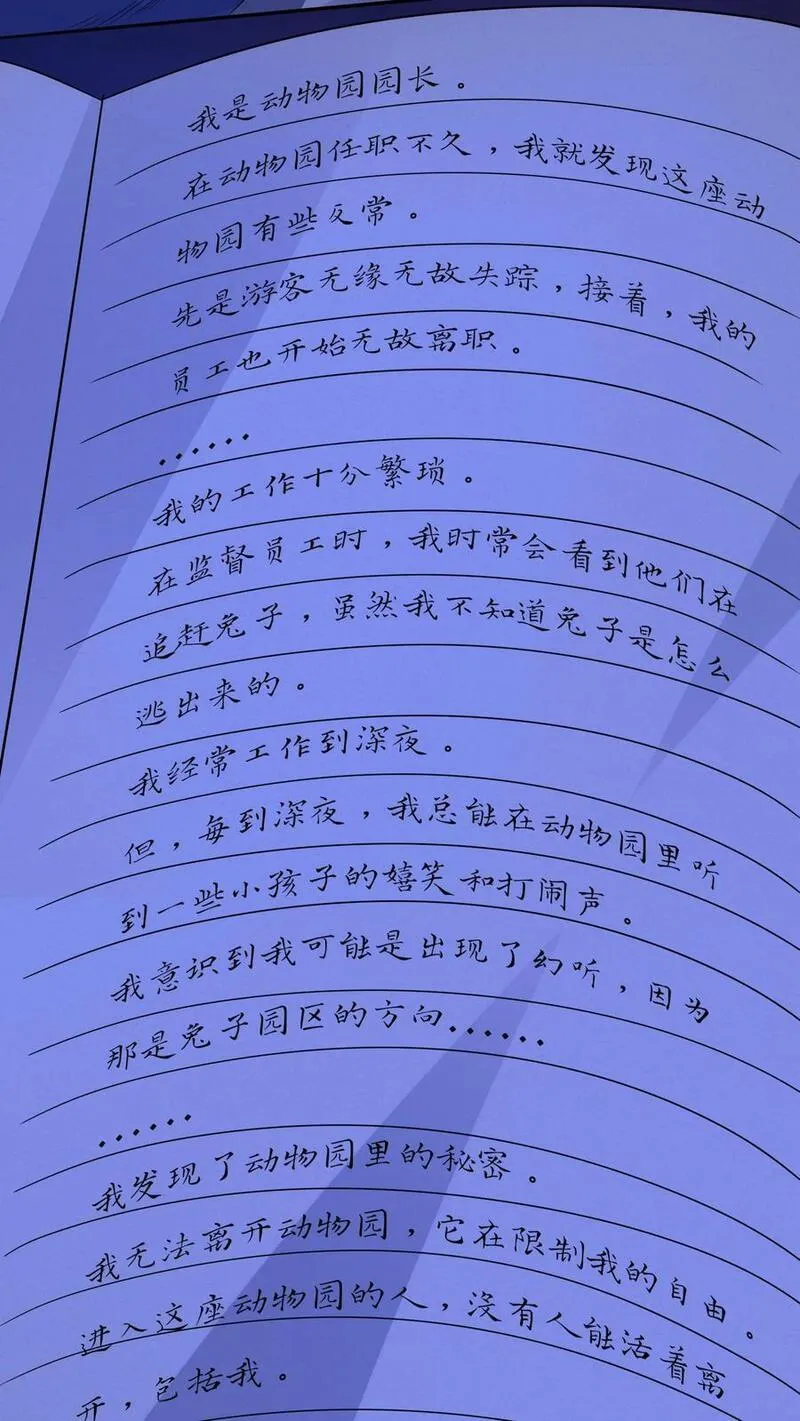 我是动物园园长。
在动物园任职不久，我就发现这座动
物园有些反常。
先是游客无缘无故失踪，接着，我的
员工也开始无故离职。
······
我的工作十分繁琐。
在监督员工时，我时常会看到他们在
追赶兔子，虽然我不知道兔子是怎么
逃出来的。
我经常工作到深夜。
但，每到深夜，我总能在动物园里听
到一些小孩子的嬉笑和打闹声。
我意识到我可能是出现了幻听，因为
那是兔子园区的方向······
······
我发现了动物园里的秘密。
我无法离开动物园，它在限制我的自由。
进入这座动物园的人，没有人能活着离
开，包括我。